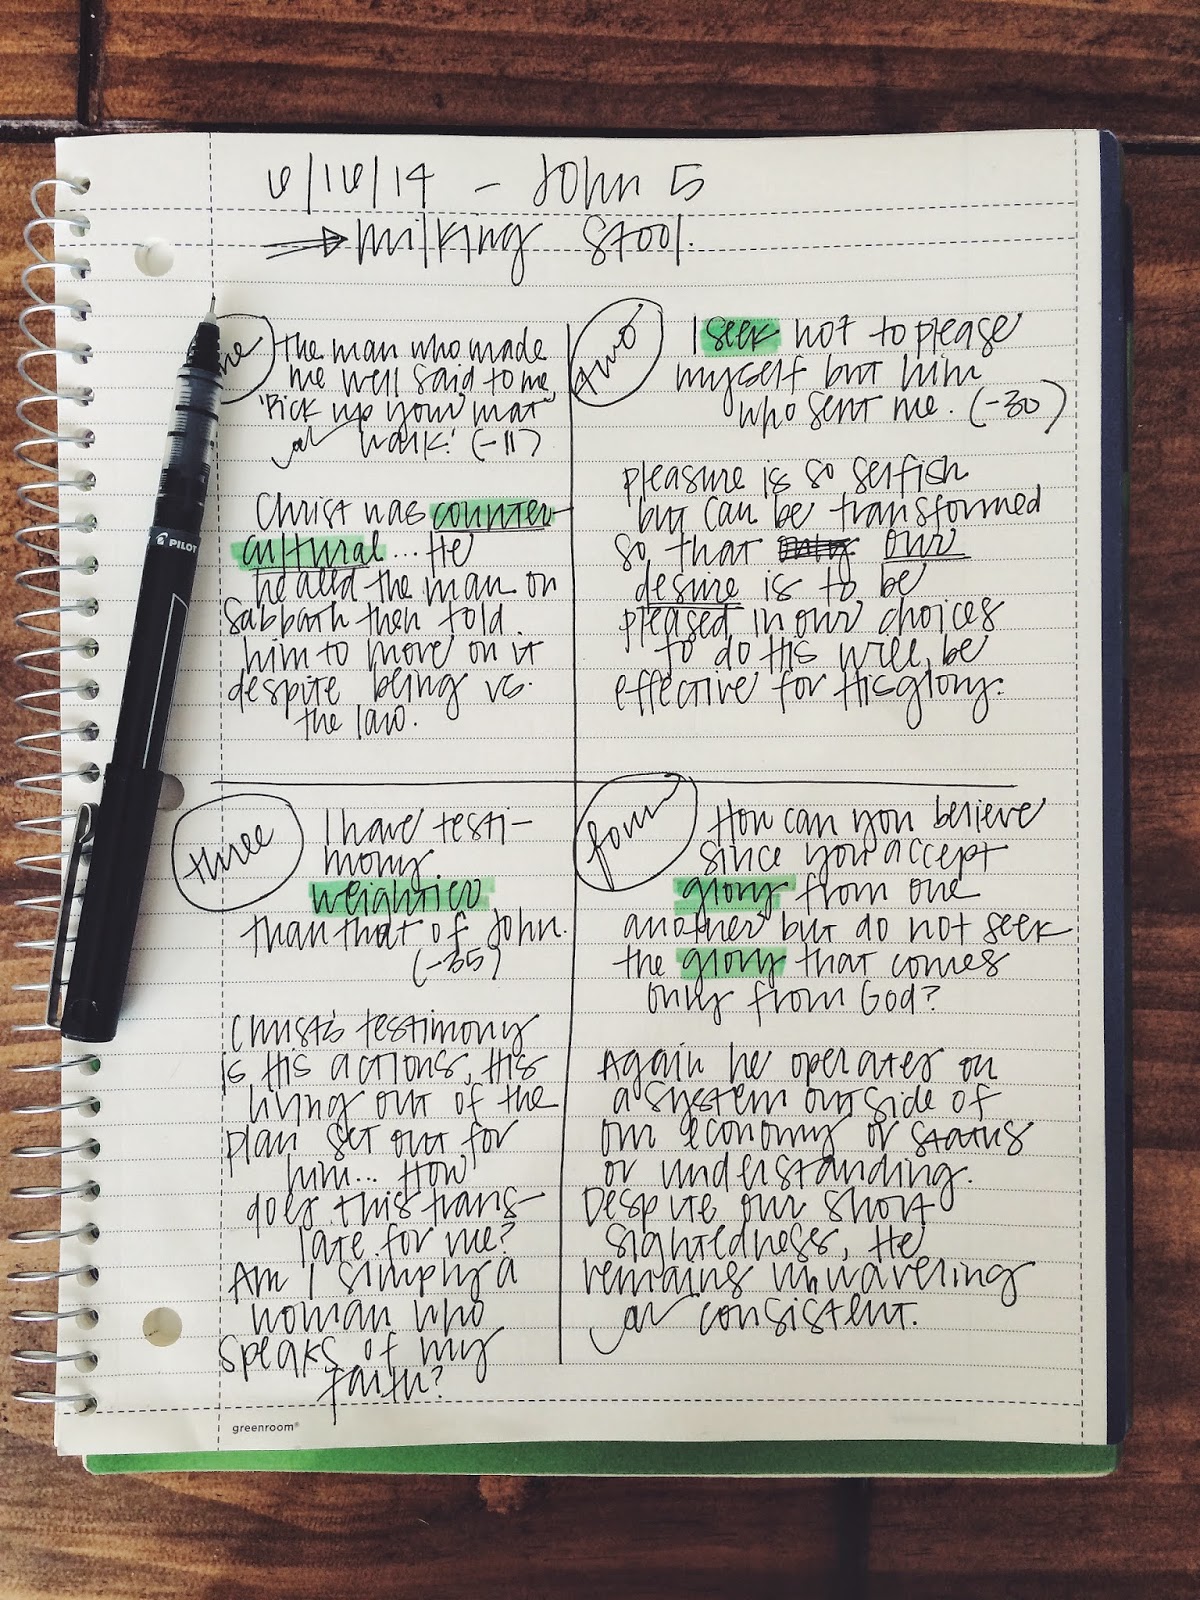 6/16/14 - John 5
milking stool.
one
The man who made
me well said to me
'Pick up your mat
walk.' (-11)
Christ was counter-
cultural... He
healed the man on
Sabbath then told
him to move on it
despite being vs.
the law.
two
I seek not to please
myself but him
who sent me. (-30)
pleasure is so selfish
but can be transformed
so that only our
desire is to be
pleased in our choices
to do His will, be
effective for His glory.
three
I have testi-
mony
weightier
than that of John.
(-35)
Christ's testimony
is His actions, His
living out of the
plan set out for
him... How
does this trans-
late for me?
Am I simply a
woman who
speaks of my
faith?
four
How can you believe
since you accept
glory from one
another but do not seek
the glory that comes
only from God?
Again he operates on
a system outside of
our economy or status
or understanding.
Despite our short
sightedness, He
remains unwavering
consistent.
greenroom®
PILOT